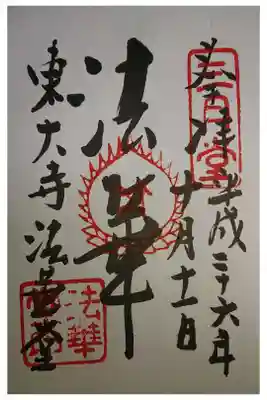 奉拝
平成二十六年
十月十一日
三月堂
法華
東大寺法華堂
法華